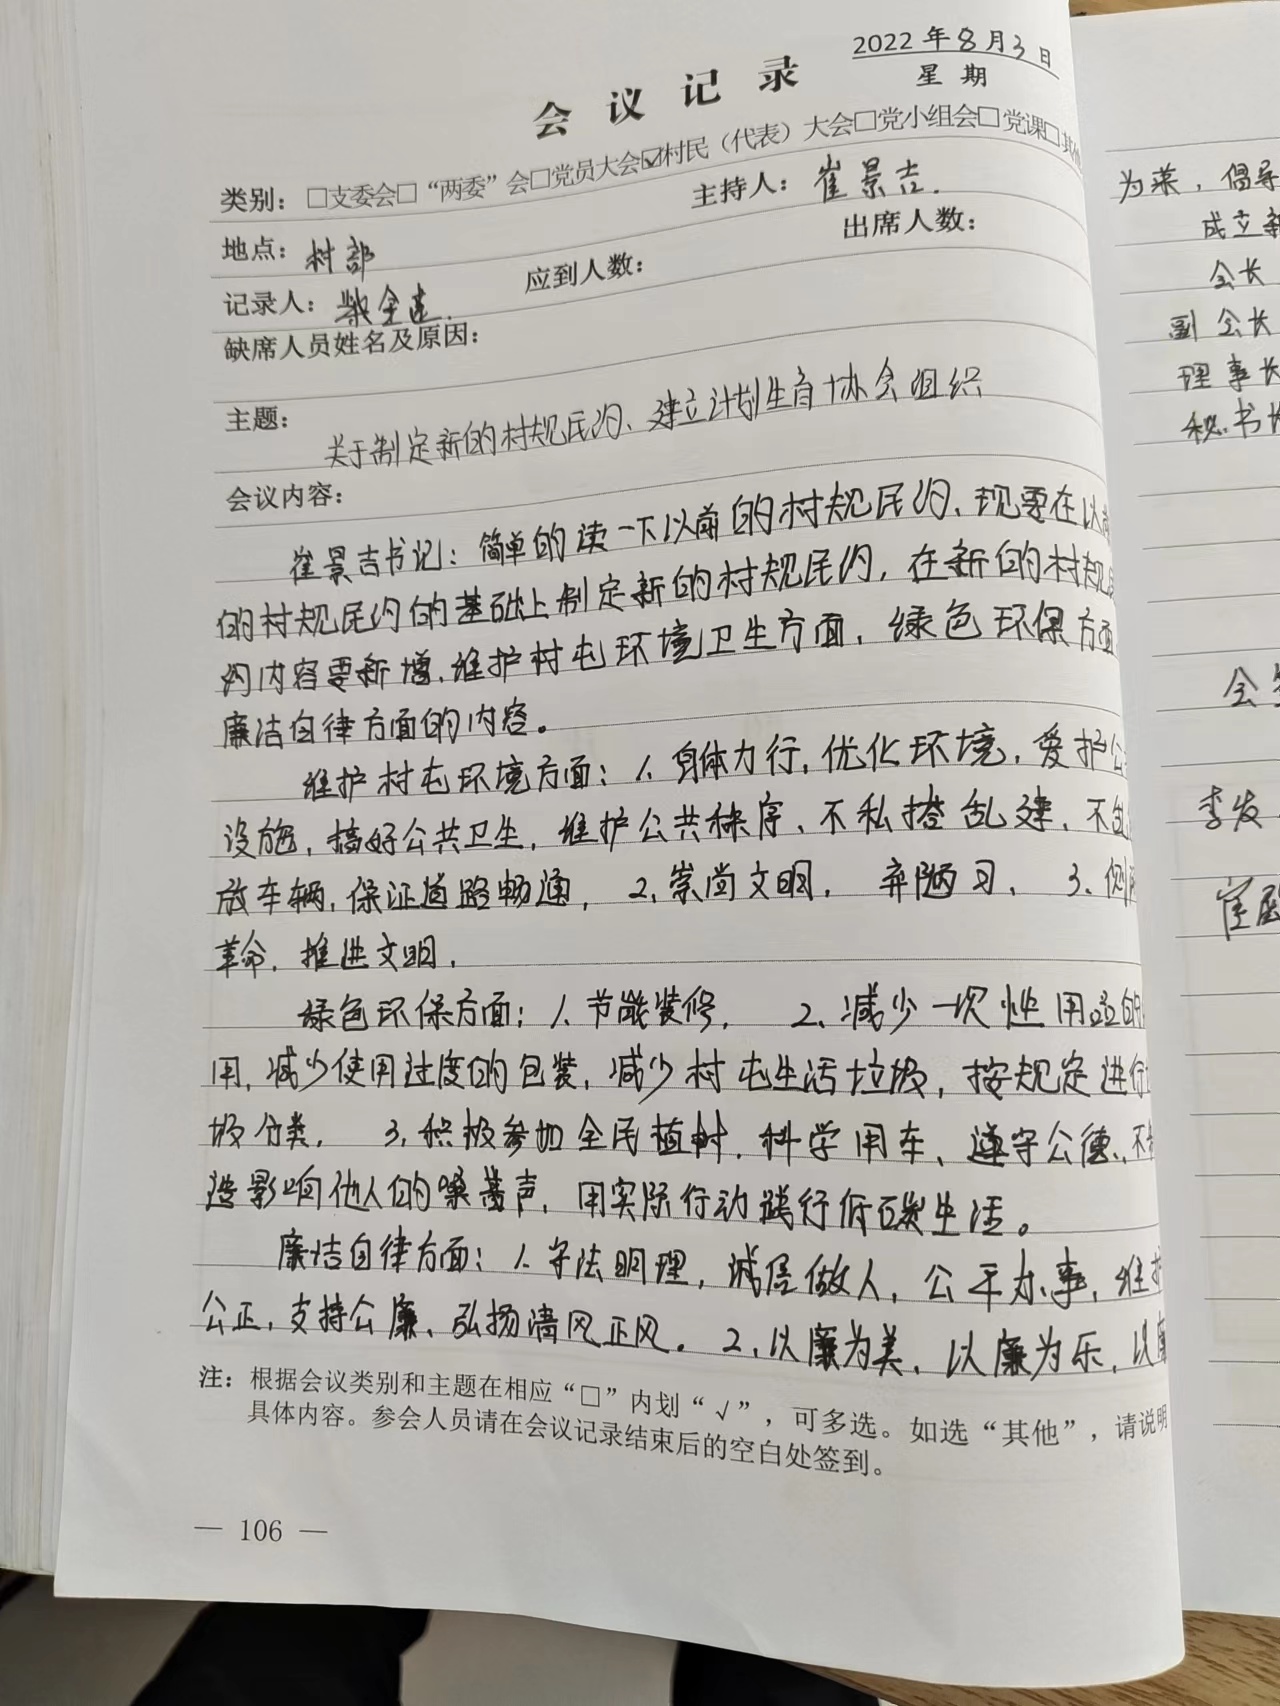 2022年8月3日
星期
会议记录
类别：□支委会□“两委”会□党员大会☑村民（代表）大会□党小组会□党课□其他
地点：村部 主持人：崔景吉.
记录人： 应到人数： 出席人数：
缺席人员姓名及原因：
主题：关于制定新的村规民约、建立计划生育协会组织
会议内容：
崔景吉书记：简单的读一下以前的村规民约、现要在以前
的村规民约的基础上制定新的村规民约，在新的村规民
约内容要新增，维护村屯环境卫生方面，绿色环保方面
廉洁自律方面的内容。
维护村屯环境方面：1、身体力行，优化环境，爱护公
设施，搞好公共卫生，维护公共秩序、不私搭乱建、不乱
放车辆，保证道路畅通， 2、崇尚文明， 弃陋习、 3、
革命，推进文明，
绿色环保方面：1、节能装修， 2、减少一次性用品的
用，减少使用过度的包装，减少村屯生活垃圾，按规定进行
圾分类， 3、积极参加全民植树，科学用车、遵守公德、不
造影响他人的噪声，用实际行动践行低碳生活。
廉洁自律方面：1、守法明理，诚信做人，公平办事，维护
公正，支持公廉、弘扬清风正风。2、以廉为美，以廉为乐，以廉
注：根据会议类别和主题在相应“□”内划“√”，可多选。如选“其他”，请说明
具体内容。参会人员请在会议记录结束后的空白处签到。
— 106 —
为荣，倡导
成立新
会长
副会长
理事长
秘书长
会
李发
崔